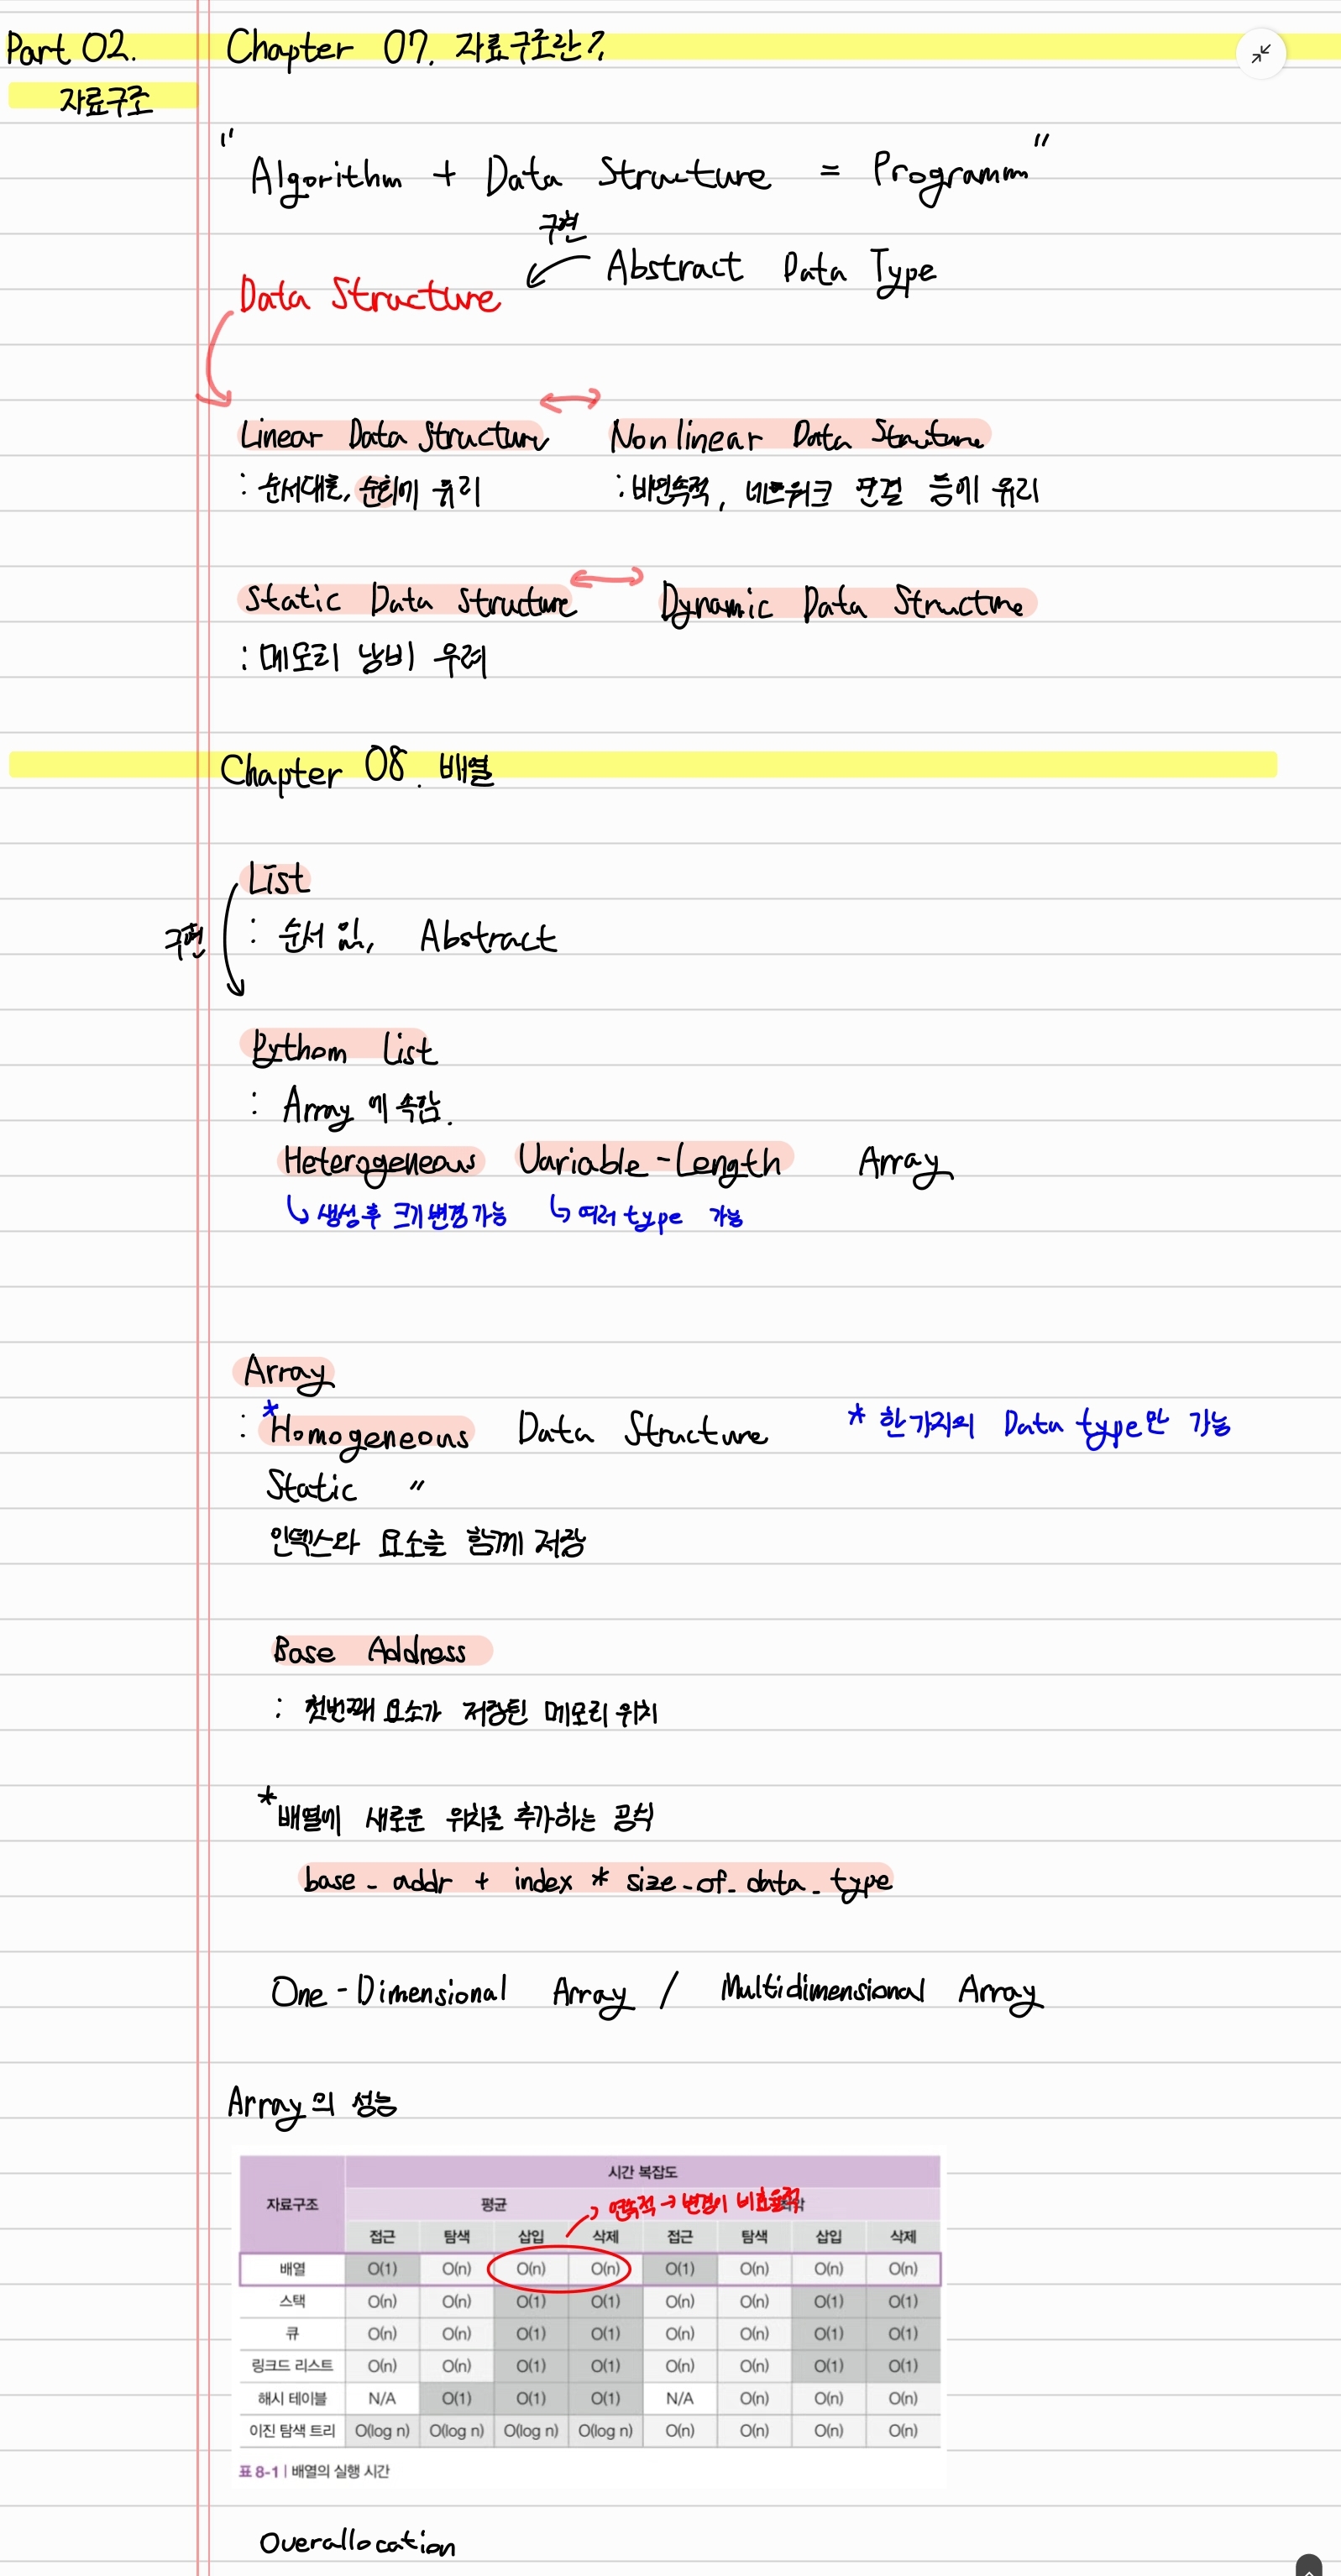 Part 02. Chapter 07. 자료구조란?
자료구조
"Algorithm + Data Structure = Programm"
구현
Abstract Data Type
Data Structure
Linear Data Structure Nonlinear Data Structure
: 순서대로, 순회에 유리 : 비연속적, 네트워크 연결 등에 유리
Static Data Structure Dynamic Data Structure
: 메모리 낭비 우려
Chapter 08. 배열
List
구현 : 순서 있, Abstract
Python List
: Array에 속함.
Heterogeneous Variable-Length Array
생성 후 크기 변경 가능 여러 type 가능
Array
: *Homogeneous Data Structure * 한가지의 Data type만 가능
Static "
인덱스와 요소를 함께 저장
Base Address
: 첫번째 요소가 저장된 메모리 위치
* 배열에 새로운 위치를 추가하는 공식
base_addr + index * size_of_data_type
One-Dimensional Array / Multidimensional Array
Array의 성능
시간 복잡도
연속적 → 변경이 비효율적
자료구조 평균
접근 탐색 삽입 삭제 접근 탐색 삽입 삭제
배열 O(1) O(n) O(n) O(n) O(1) O(n) O(n) O(n)
스택 O(n) O(n) O(1) O(1) O(n) O(n) O(1) O(1)
큐 O(n) O(n) O(1) O(1) O(n) O(n) O(1) O(1)
링크드 리스트 O(n) O(n) O(1) O(1) O(n) O(n) O(1) O(1)
해시 테이블 N/A O(1) O(1) O(1) N/A O(n) O(n) O(n)
이진 탐색 트리 O(log n) O(log n) O(log n) O(log n) O(n) O(n) O(n) O(n)
표 8-1 | 배열의 실행 시간
Overallocation